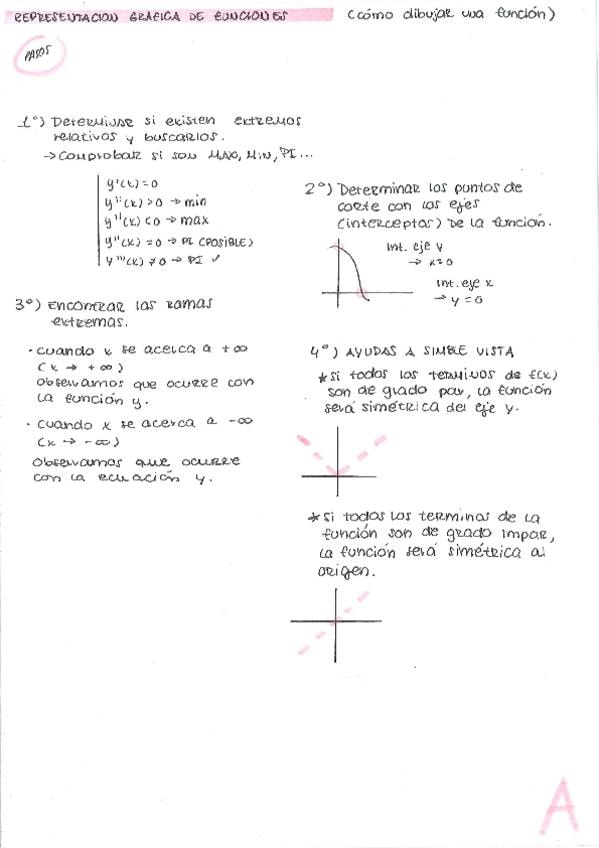 REPRESENTACION GRAFICA DE FUNCIONES (cómo dibujar una función)
PASOS
1º) Determinar si existen extremos
relativos y buscarlos.
→ Comprobar si son MAX, MIN, PI...
y'(x) = 0
y''(x) > 0 → min
y''(x) < 0 → max
y''(x) = 0 → PI (POSIBLE)
y'''(x) ≠ 0 → PI ✓
2º) Determinar los puntos de
corte con los ejes
(interceptos) De la función.
Int. eje y
→ x=0
Int. eje x
→ y = 0
3º) Encontrar las ramas
extremas.
· cuando x se acerca a +∞
(x → +∞)
Observamos que ocurre con
la función y.
· cuando x se acerca a -∞
(x → -∞)
Observamos que ocurre
con la ecuación y.
4º) AYUDAS A SIMPLE VISTA
* Si todos los terminos de f(x)
son de grado par, la función
será simétrica del eje y.
* Si todos los terminos de la
función son de grado impar,
la función será simétrica al
origen.
A